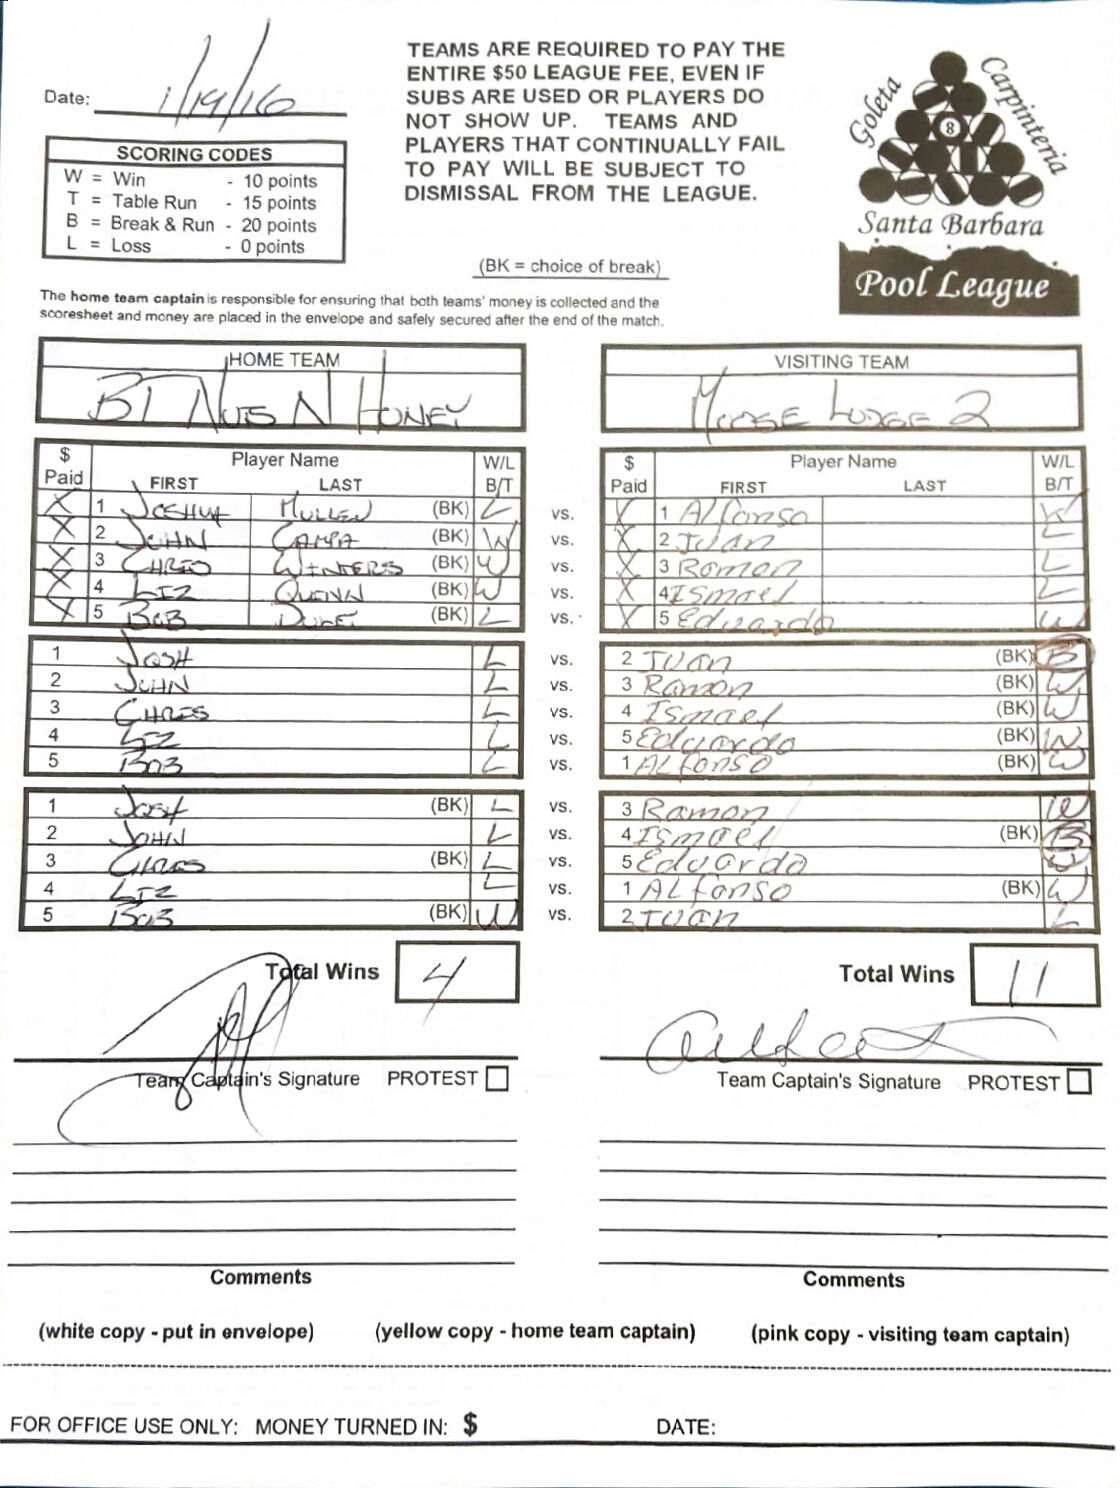 Date: 1/19/16
TEAMS ARE REQUIRED TO PAY THE
ENTIRE $50 LEAGUE FEE, EVEN IF
SUBS ARE USED OR PLAYERS DO
NOT SHOW UP. TEAMS AND
PLAYERS THAT CONTINUALLY FAIL
TO PAY WILL BE SUBJECT TO
DISMISSAL FROM THE LEAGUE.
Goleta
Carpinteria
8
Santa Barbara
Pool League
SCORING CODES
W = Win - 10 points
T = Table Run - 15 points
B = Break & Run - 20 points
L = Loss - 0 points
(BK = choice of break)
The home team captain is responsible for ensuring that both teams' money is collected and the
scoresheet and money are placed in the envelope and safely secured after the end of the match.
HOME TEAM VISITING TEAM
BT NUTS N HONEY MOOSE LODGE 2
$ Paid Player Name FIRST LAST W/L B/T $ Paid Player Name FIRST LAST W/L B/T
X 1 JOSHUA MULLEN (BK) L vs. X 1 Alfonso W
X 2 JOHN CAMPA (BK) W vs. X 2 Juan L
X 3 CHRIS WINTERS (BK) W vs. X 3 Ramon L
X 4 LIZ QUINN (BK) W vs. X 4 Ismael L
X 5 BOB (BK) L vs. X 5 Eduardo W
1 JOSH L vs. 2 JUAN (BK) B
2 JOHN L vs. 3 Ramon (BK) W
3 CHRIS L vs. 4 Ismael (BK) W
4 LIZ L vs. 5 Eduardo (BK) W
5 BOB L vs. 1 ALfonso (BK) W
1 JOSH (BK) L vs. 3 Ramon W
2 JOHN L vs. 4 Ismael (BK) B
3 CHRIS (BK) L vs. 5 Eduardo W
4 LIZ L vs. 1 ALfonso (BK) W
5 BOB (BK) W vs. 2 JUAN L
Total Wins 4 Total Wins 11
Team Captain's Signature PROTEST Team Captain's Signature PROTEST
Comments Comments
(white copy - put in envelope) (yellow copy - home team captain) (pink copy - visiting team captain)
FOR OFFICE USE ONLY: MONEY TURNED IN: $ DATE: